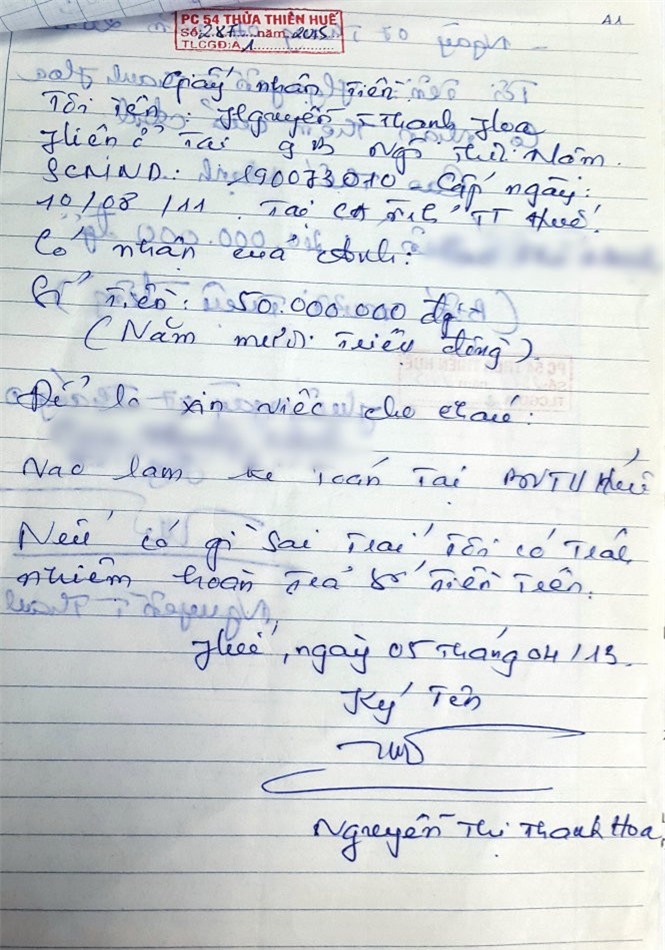 A1
PC 54 THỪA THIÊN HUẾ
Số: 287 năm 2015
TLCGĐ:A1
Giấy nhận tiền
Tôi tên: Nguyễn T Thanh Hoa
Hiện ở tại Ngô Thời Nhậm.
SCMND: 190073010 Cấp ngày:
10/08/11. Tại CA TT Huế.
Có nhận của Anh:
Số tiền: 50.000.000 đ
(Năm mươi triệu đồng).
Để lo xin việc cho cháu:
Vào làm kế toán tại BVTW Huế
Nếu có gì sai trái tôi có trách
nhiệm hoàn trả số tiền trên.
Huế, ngày 05 tháng 04/13.
Ký tên
Nguyễn Thị Thanh Hoa